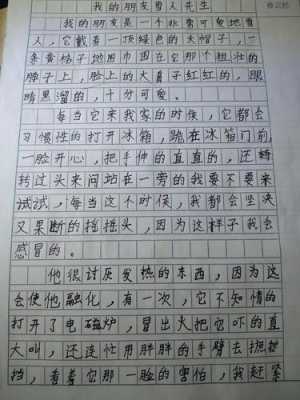 我的朋友雪人先生
我的朋友是一个非常可爱地雪
人，它戴着一顶绿色的大帽子，一
条黄格子地围巾围在它那个粗壮的
脖子上，脸上的大鼻子红红的，眼
睛黑溜的，十分可爱。
每当它来我家的时候，它都会
习惯性的打开冰箱，跪在冰箱门前，
一脸开心，把手伸的直直的，还
转过头来问站在一旁的我要不要来
试试，每当这个时候，我都会坚决
又果断的摇摇头，因为这样子我会
感冒的。
他很讨厌发热的东西，因为这
会使他融化，有一次，它不知情的
打开了电磁炉，冒出火把它吓的直
大叫，还连忙用胖胖的手臂去
挡，看着它那一脸的害怕，我赶紧